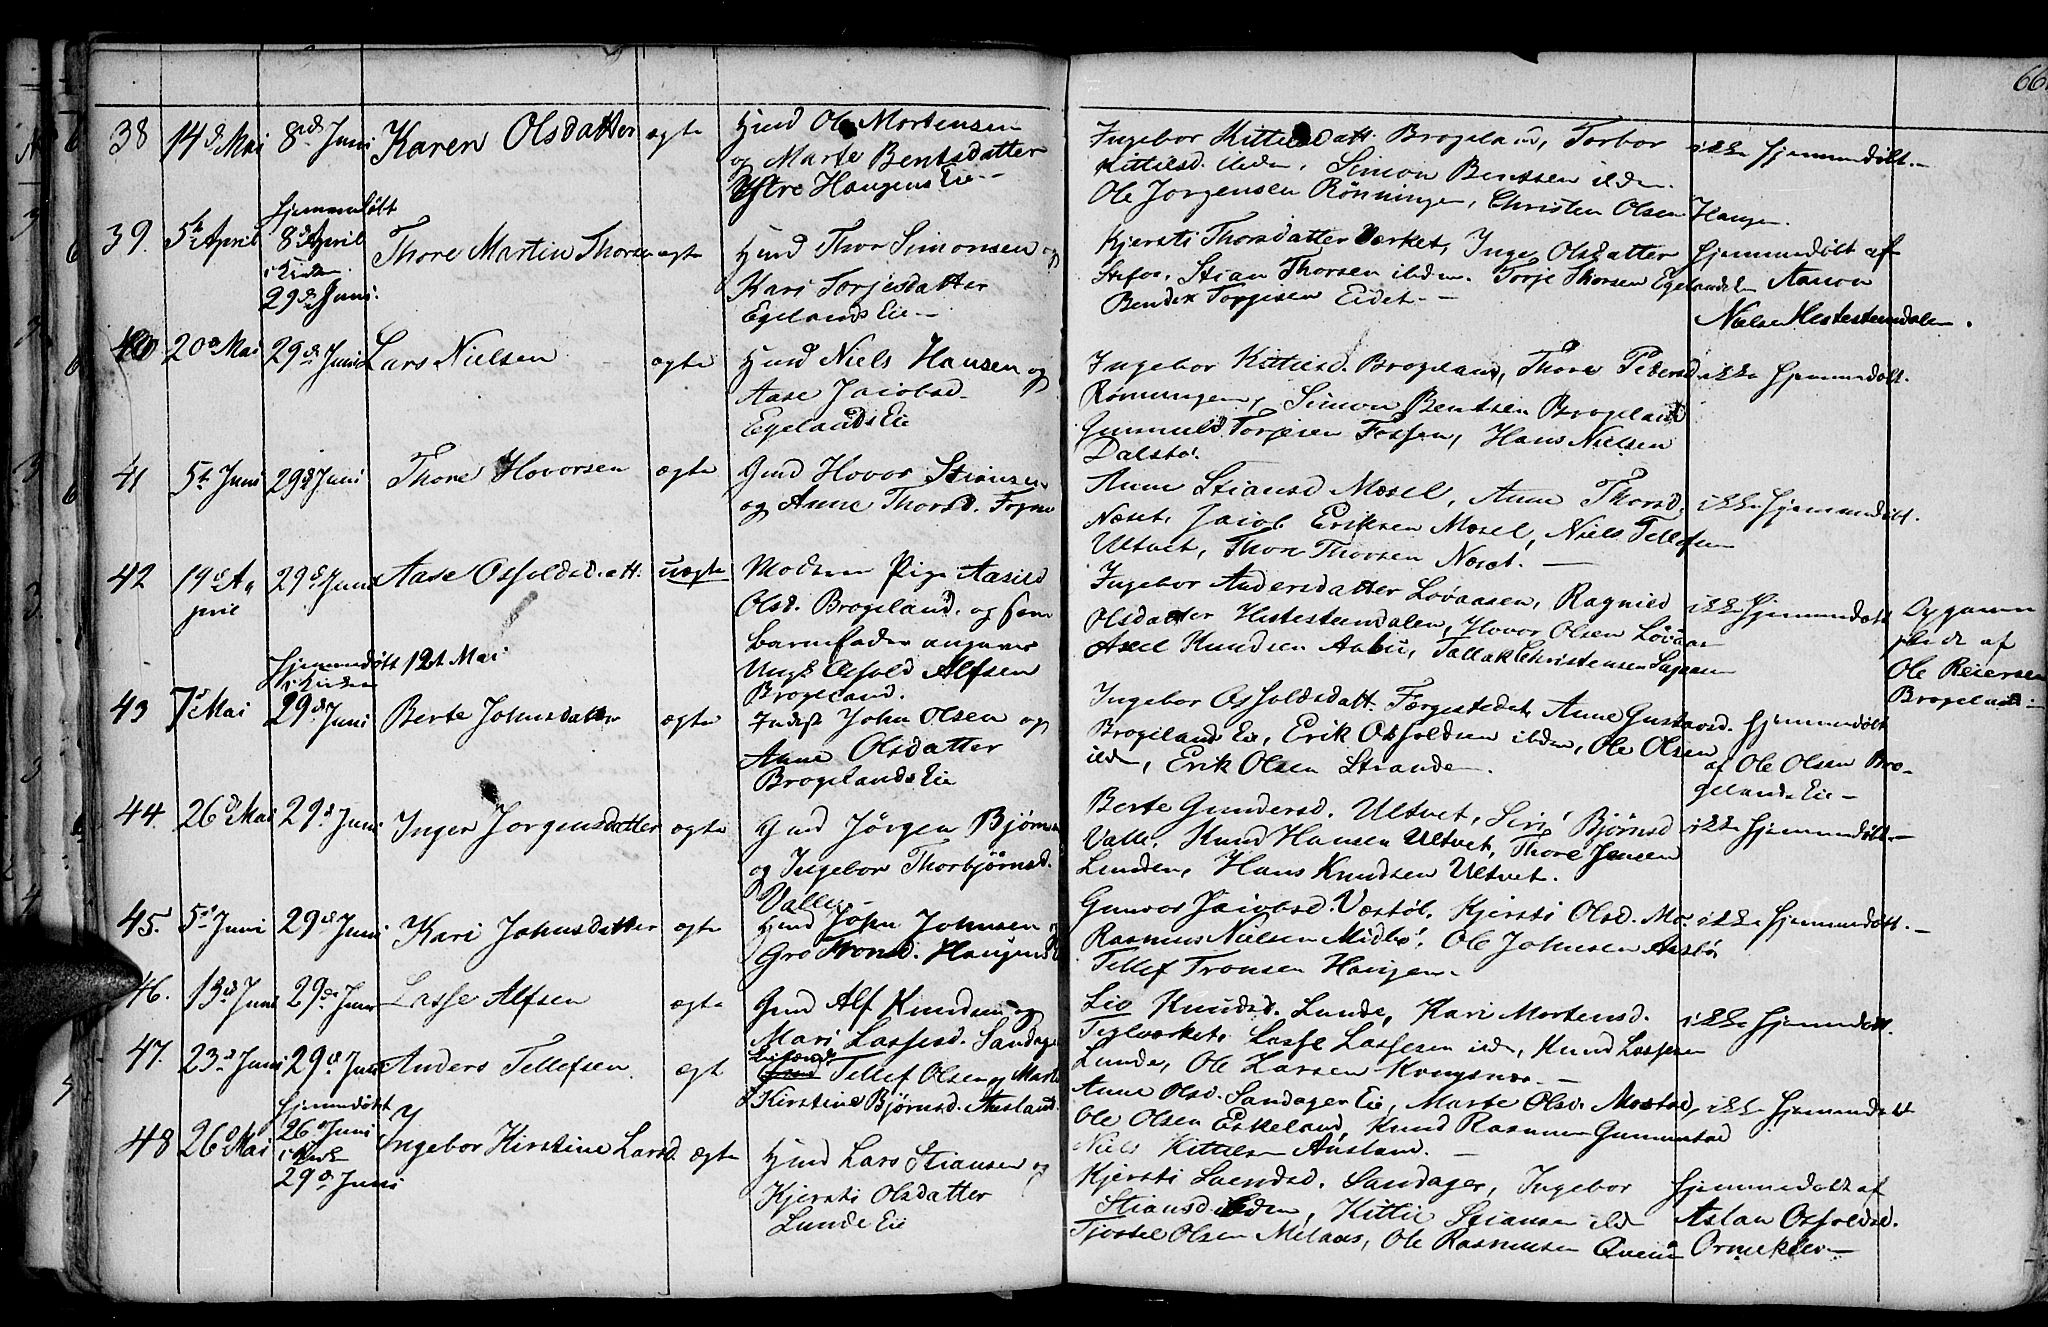 66
38 14d Mai 8de Juni Karen Olsdatter ægte Hmd Ole Mortensen
og Marte Bentsdatter
Ystre Haugens Eie -
Ingebor Kittilsdatt. Brogeland, Torbor
Kittilsd. ibdm, Simon Bentsen ibdm.
Ole Jorgensen Rønningen, Christen Olsen Haugen.
ikke hjemmedøbt.
39. 5te April hjemmedøbt
8de April
i Kirken
29de Juni.
Thore Martin Thorsen ægte Hmd Thor Simonsen og
Kari Torjesdatter
Egelands Eie -
Kjersti Thorsdatter Værket, Inger Olsdatter
Stian Thorsen ibdm. Torje Thorsen Egeland
Bendix Torjisen Eidet. -
hjemmedøbt af
Aanon
Nielsen Hestestemdalen.
40 20de Mai 29de Juni Lars Nielsen ægte Hmd Niels Hansen og
Aase Jacobsd.
Egelands Eie
Ingebor Kittilsd. Brogeland, Thore Pedersd.
Rønningen, Simon Bentsen Brogeland
Gunnuld Torjesen Fossen, Hans Nielsen
Dalstø.
ikke hjemmedøbt.
41 5te Juni 29de Juni Thore Hovorsen ægte Gmd Hovor Stiansen
og Anne Thorsd. Fogne
Anne Stiansd Mosel, Anne Thorsd.
Næset, Jacob Eriksen Mosel, Niels Tellefsen
Ultvet, Thor Thorsen Næset. -
ikke hjemmedøbt.
42 19de A-
pril 29de Juni Aase Osfoldsdatt. uægte Moderen Pige Aasild
Olsd. Brogeland. og som
barnefader angives
Ungk. Osfold Alfsen
Brogeland.
Ingebor Andersdatter Løvaasen, Ragnild
Olsdatter Hestestemdalen, Hovor Olsen Løvaas
Axel Knudsen Aabü, Tallak Christensen
ikke hjemmedøbt
Opgaven
af
Ole Reiersen
Brogeland. -
43 7de Mai hjemmedøbt 12te Mai
i Kirken
29de Juni Berte Johnsdatter ægte Inderst John Olsen og
Anne Olsdatter
Brogelands Eie
Ingebor Osfoldsdatt. Færgestedet, Anne Gustavsd.
Brogelands Eie, Erik Osfoldsen ibdm, Ole Olsen
ibdm, Erik Olsen Stranden.
hjemmedøbt
af Ole Olsen Bro-
gelands Eie -
44. 26de Mai 29de Juni Inger Jorgensdatter ægte Gmd Jørgen Bjørnsen
og Ingebor Thorbjørnsd.
Valle.
Berte Gundersd. Ultvet, Siri Bjørnsd
Valle, Knud Hansen Ultvet, Thore Jensen
Lunden, Hans Knudsen Ultvet.
ikke hjemmedøbt. -
45. 5te Juni 29de Juni Kari Johnsdatter ægte Hmd John Johnsen og
Gro Tronsd. Haugens
Gunvor Jacobsd. Væstøl, Kjersti Olsd. Mo.
Rasmus Nielsen Midbø, Ole Johnsen
Tellef Tronsen Haugen.
ikke hjemmedøbt. -
46. 13de Juni 29de Juni Lasse Alfsen ægte Gmd Alf Knudsen og
Mari Lassesd. Sandager
Liv Knudsd. Lunde, Kari Mortensd.
Teglverket, Lasse Lassesen ibdm, Knud Lassesen
Lunde, Ole Larsen Kongsnæs. -
ikke hjemmedøbt.
47. 23de Juni 29de Juni Anders Tellefsen ægte Tellef Olsen og Marte
Kirstine Bjørnsd. Ausland.
Anne Olsd. Sandager Eie, Marte Olsd. Mostad,
Ole Olsen Eskeland, Knud Rasmusen Gunnestad
Niels Kittelsen Ausland. -
ikke hjemmedøbt
48 26de Mai hjemmedøbt
26de Juni
i Kirken
29de Juni
Ingebor Kirstine Larsd. ægte Hmd Lars Stiansen og
Kjersti Olsdatter
Lunde Eie
Kjersti Svendsd. Sandager, Ingebor
Stiansd ibdm, Kittil Stiansen ibdm
Tjostel Olsen Melaas, Ole Rasmusen
hjemmedøbt af
Aslan Osfoldsd.
Ormeklev -